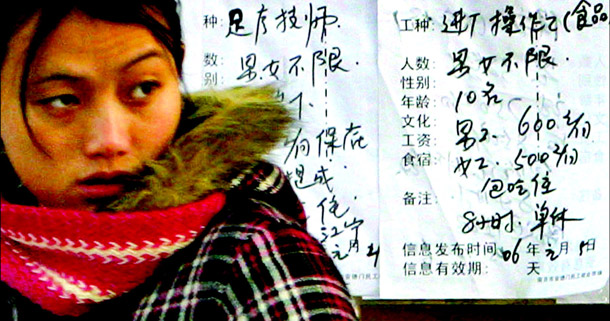 种: 足疗技师.
数: 男女不限.
别:
保底
提成
住
工种: 进厂操作工(食品
人数: 男女不限.
性别:
年龄: 10名
文化: 男工 600元/月
工资:
食宿: 女工 500元/月
包吃住
备注: 8小时. 单休
信息发布时间: 06年元月5日
信息有效期: 天